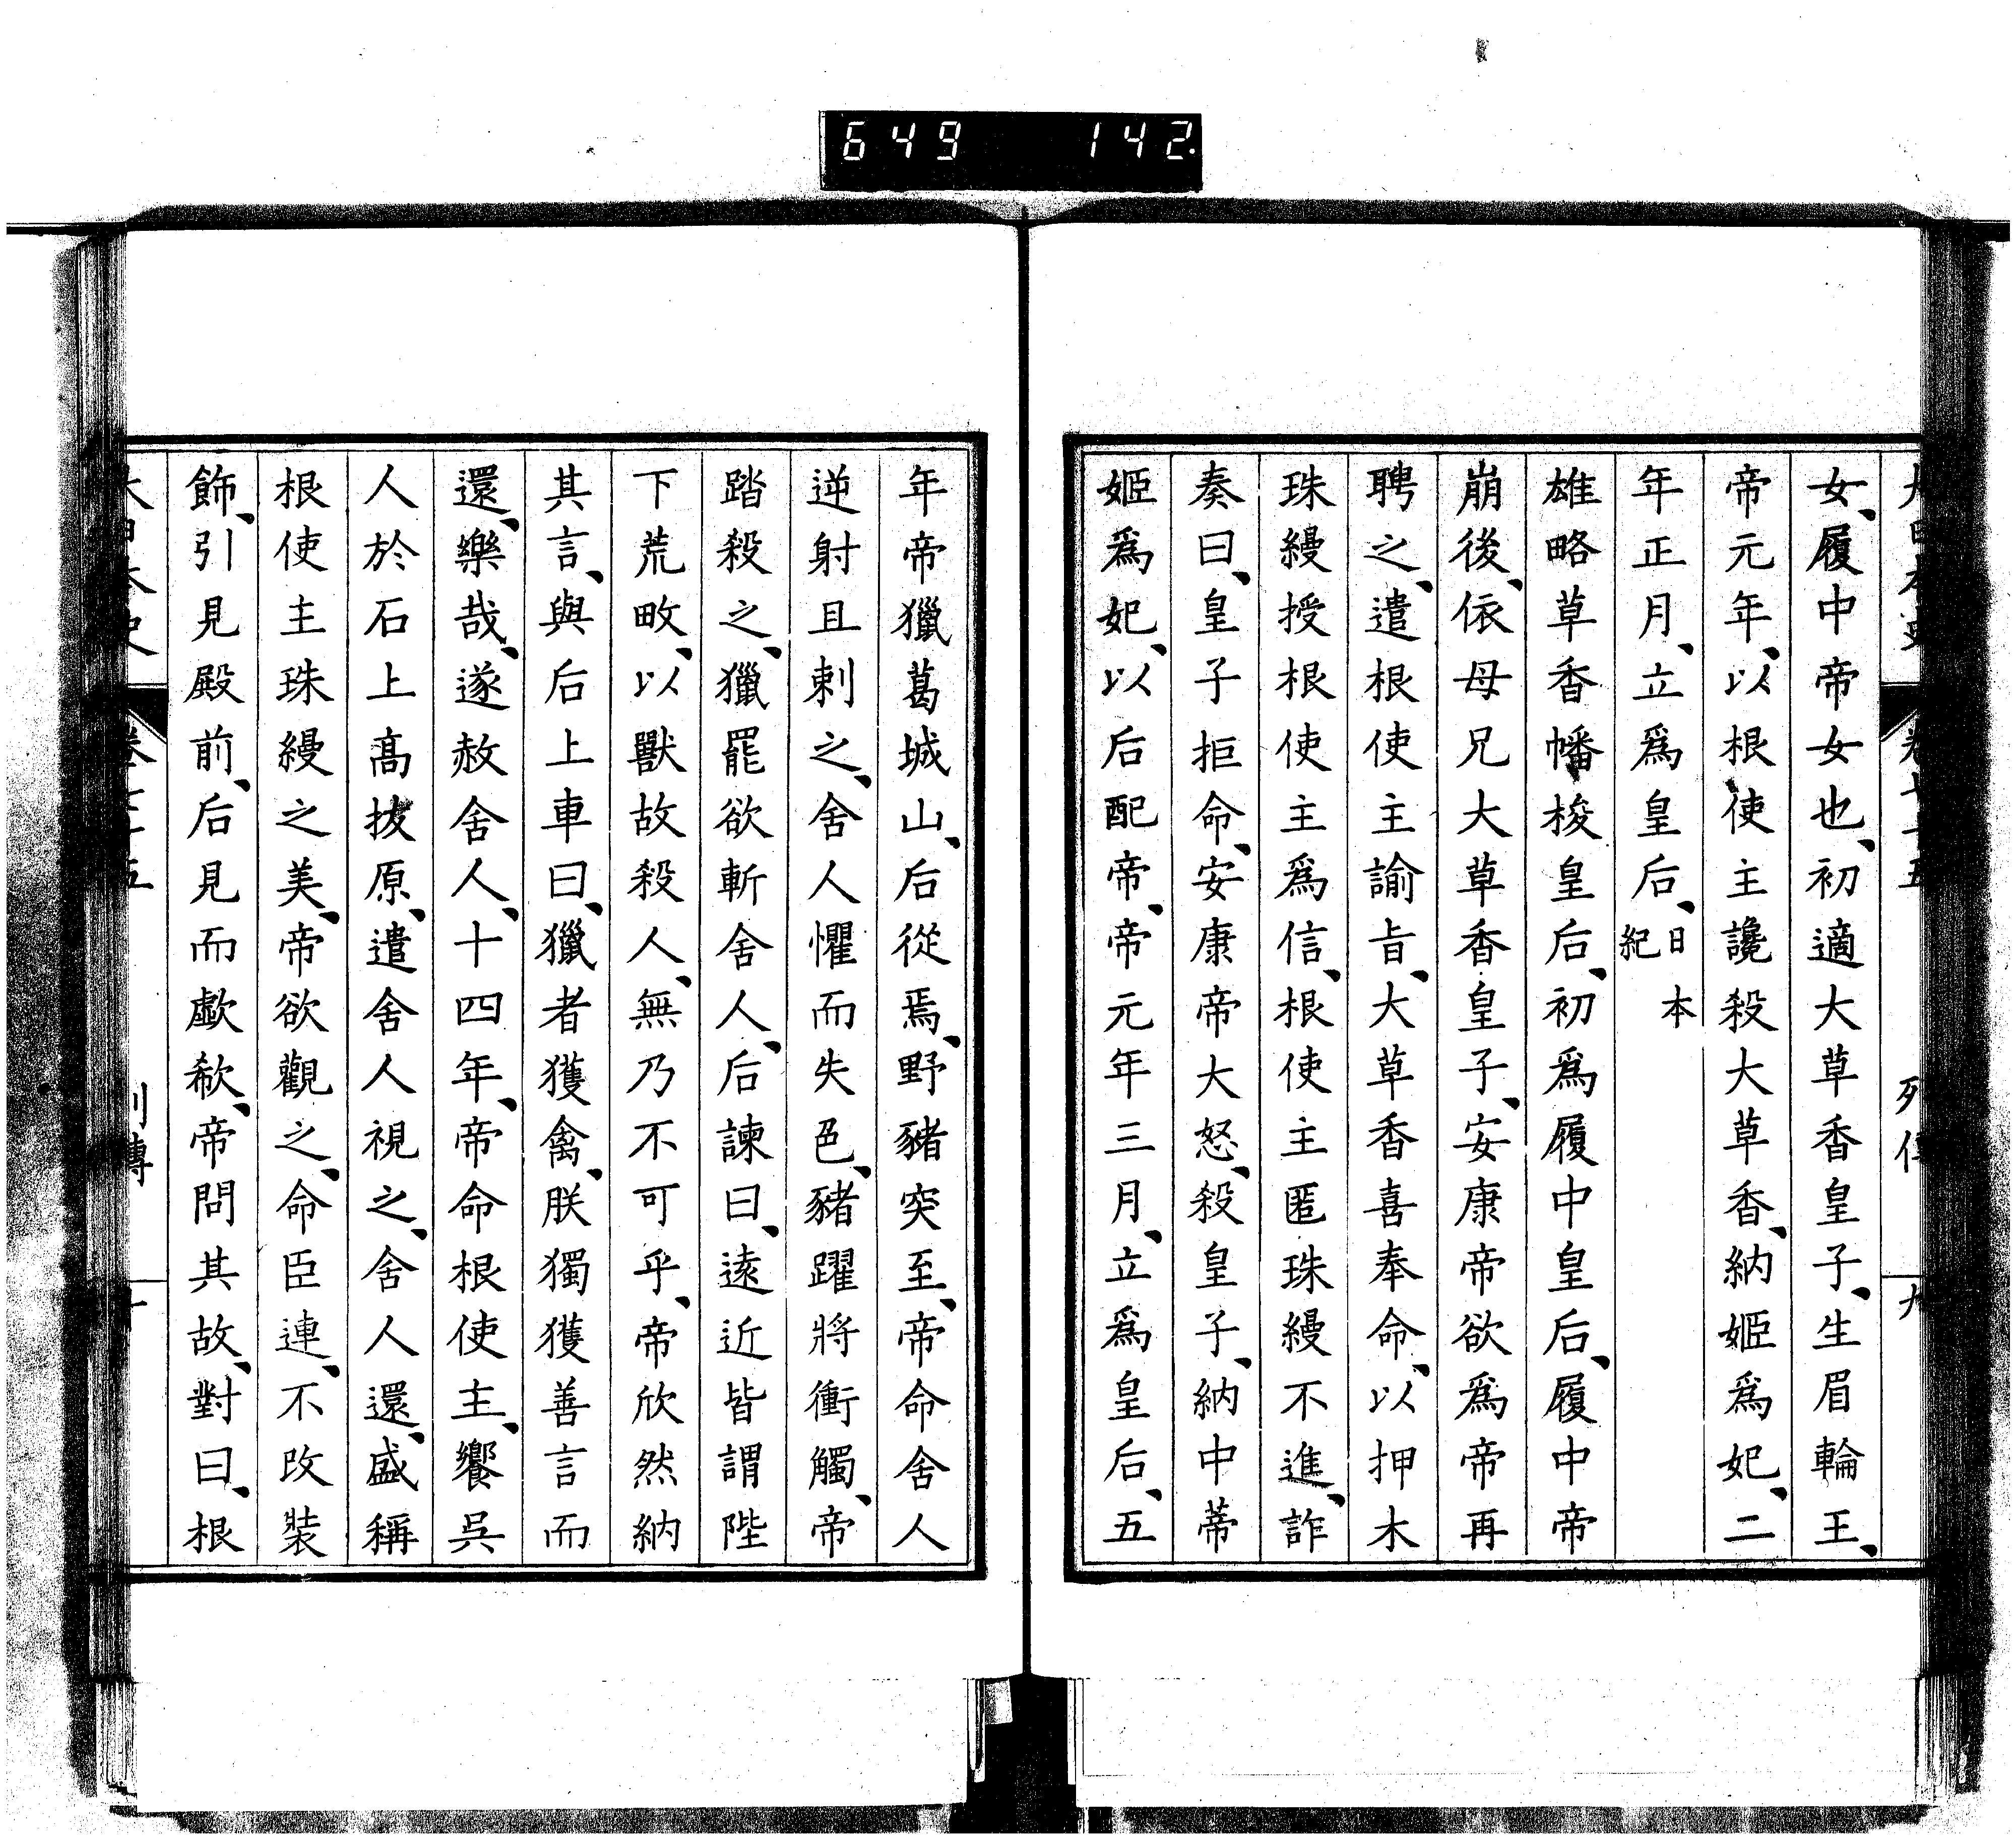 649 142
大日本史 卷七十五 列傳 九
女、履中帝女也、初適大草香皇子、生眉輪王、
帝元年、以根使主讒殺大草香、納姬爲妃、二
年正月、立爲皇后、日本紀
雄略草香幡梭皇后、初爲履中皇后、履中帝
崩後、依母兄大草香皇子、安康帝欲爲帝再
聘之、遣根使主諭旨、大草香喜奉命、以押木
珠縵授根使主爲信、根使主匿珠縵不進、詐
奏曰、皇子拒命、安康帝大怒、殺皇子、納中蒂
姬爲妃、以后配帝、帝元年三月、立爲皇后、五
年帝獵葛城山、后從焉、野豬突至、帝命舍人
逆射且刺之、舍人懼而失色、豬躍將衝觸、帝
踏殺之、獵罷欲斬舍人、后諫曰、遠近皆謂陛
下荒畋、以獸故殺人、無乃不可乎、帝欣然納
其言、與后上車曰、獵者獲禽、朕獨獲善言而
還、樂哉、遂赦舍人、十四年、帝命根使主、饗吳
人於石上高拔原、遣舍人視之、舍人還、盛稱
根使主珠縵之美、帝欲觀之、命臣連、不改裝
飾、引見殿前、后見而歔欷、帝問其故、對曰、根
大日本史 卷七十五 列傳 十